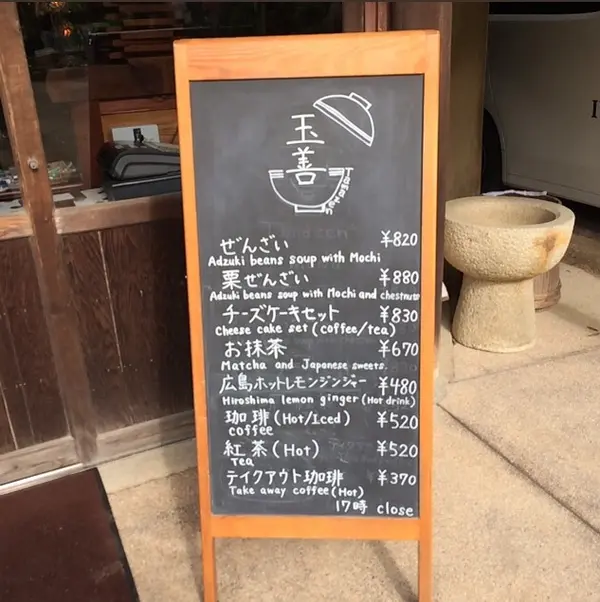 玉
善
Tamazen
ぜんざい ¥820
Adzuki beans soup with Mochi
栗ぜんざい ¥880
Adzuki beans soup with Mochi and chestnuts
チーズケーキセット ¥830
Cheese cake set (coffee/tea)
お抹茶 ¥670
Matcha and Japanese sweets.
広島ホットレモンジンジャー ¥480
Hiroshima lemon ginger (Hot drink)
珈琲 (Hot/Iced) ¥520
coffee
紅茶 (Hot) ¥520
Tea
テイクアウト珈琲 ¥370
Take away coffee (Hot)
17時 close